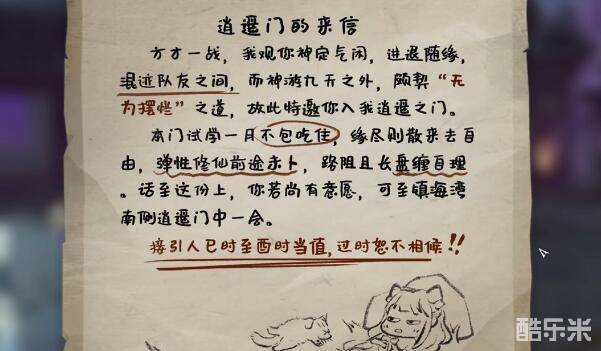 逍遥门的来信
方才一战，我观你神定气闲，进退随缘，
混迹队友之间，而神游九天之外，颇契“无
为摆烂”之道，故此特邀你入我逍遥之门。
本门试学一月不包吃住，缘尽则散来去自
由，弹性修仙前途未卜，路阻且长盘缠自理
。话至这份上，你若尚有意愿，可至镇海湾
南侧逍遥门中一会。
接引人巳时至酉时当值，过时恕不相候！！
酷乐米